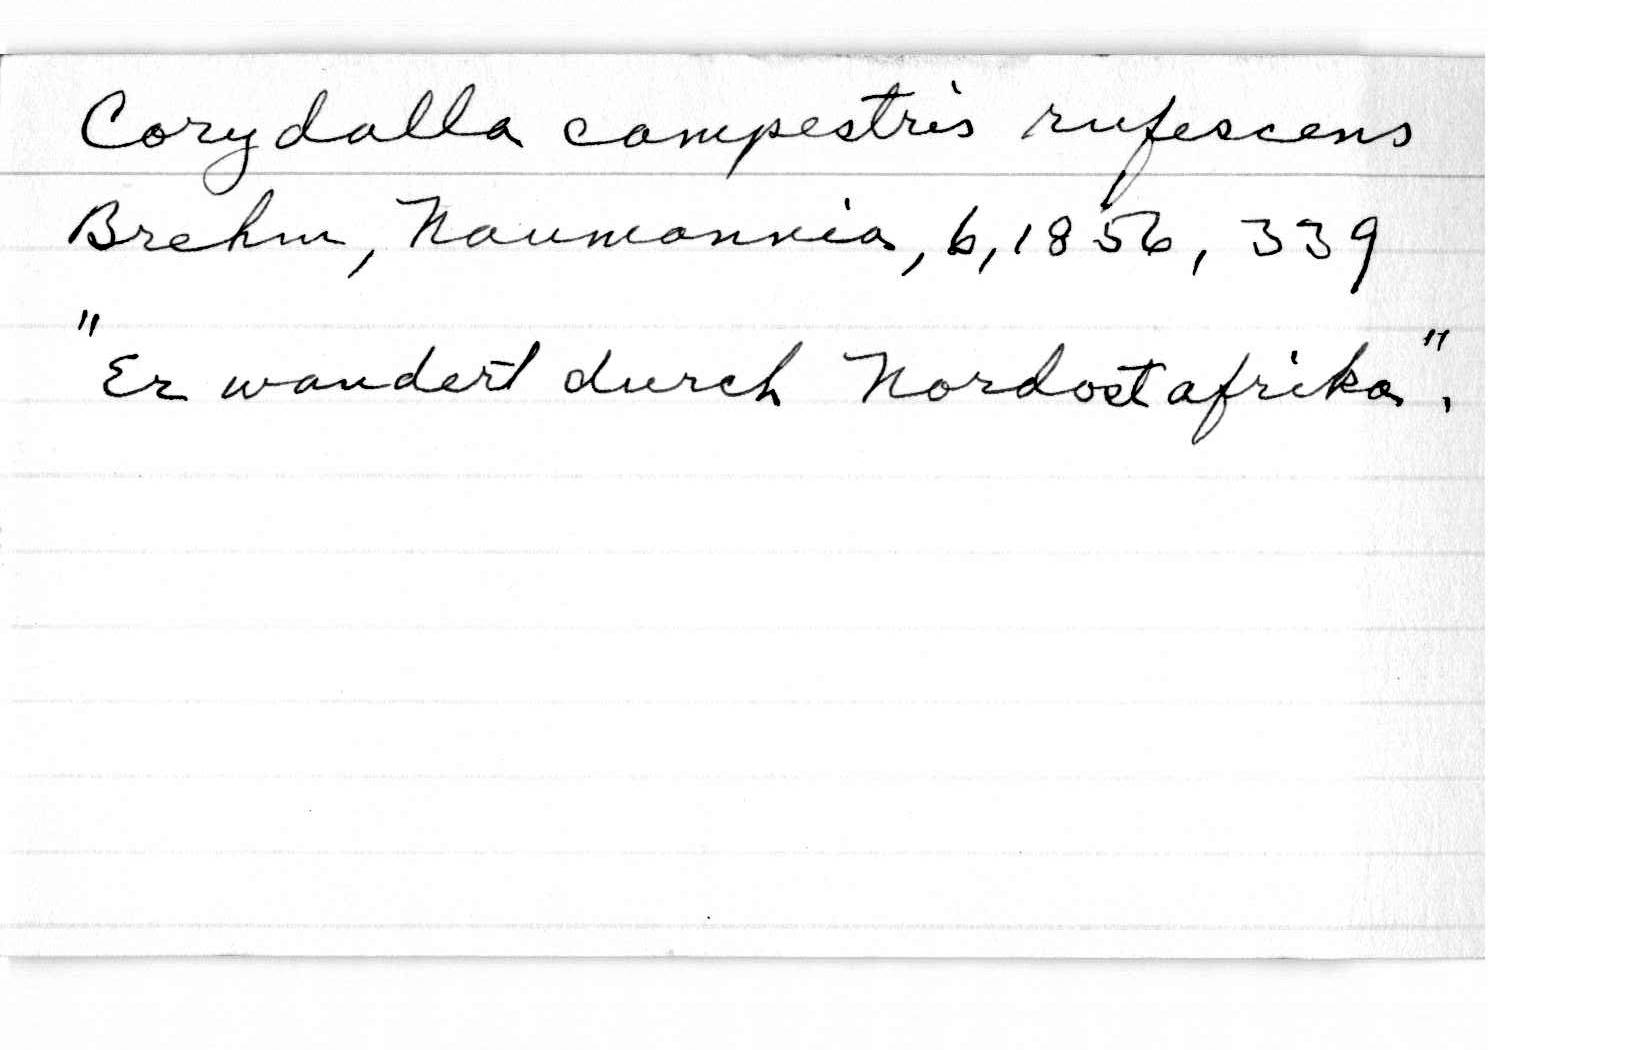 Corydalla campestris rufescens
Brehm, Naumannia, 6, 1856, 339
"Er wandert durch Nordostafrika".